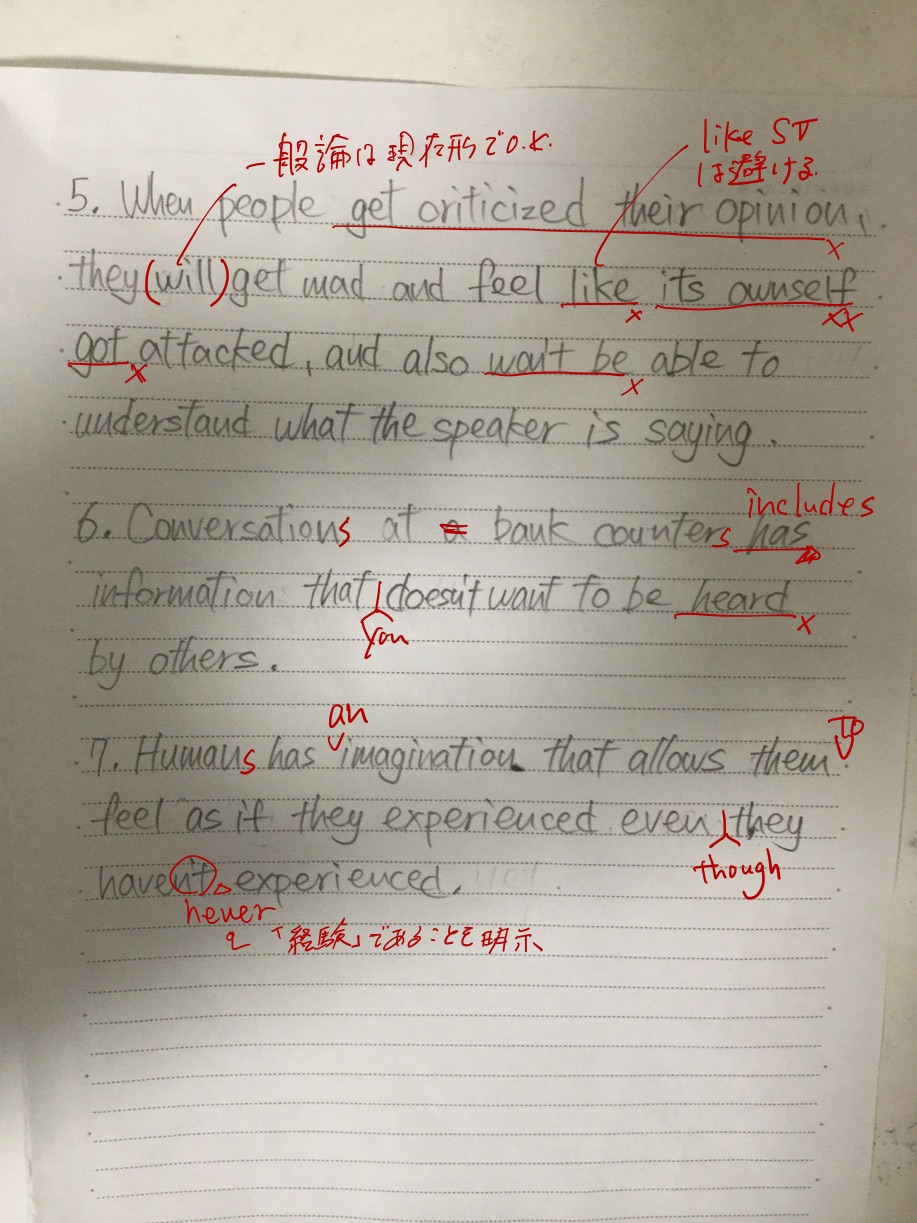 一般論は現在形でO.K.
like SV
は避ける.
5. When people get criticized their opinion,
x
they (will) get mad and feel like its ownself
x xx
got attacked, and also won't be able to
x x
understand what the speaker is saying.
includes
6. Conversations at a bank counters has
information that doesn't want to be heard
you x
by others.
an To
7. Humans has imagination that allows them
feel as if they experienced even they
though
haven't experienced.
never
「経験」であることを明示